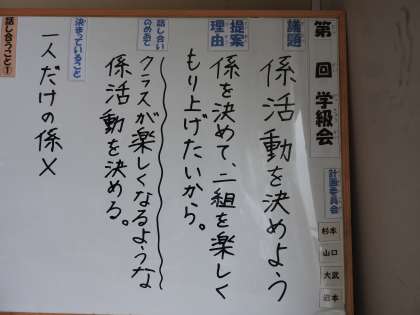 第 回 学級会
計画委員会
杉本
山口
大武
辺本
議題
係活動を決めよう
提案理由
係を決めて、二組を楽しく
もり上げたいから。
話し合いのめあて
クラスが楽しくなるような
係活動を決める。
決まっていること
一人だけの係×
話し合うこと①